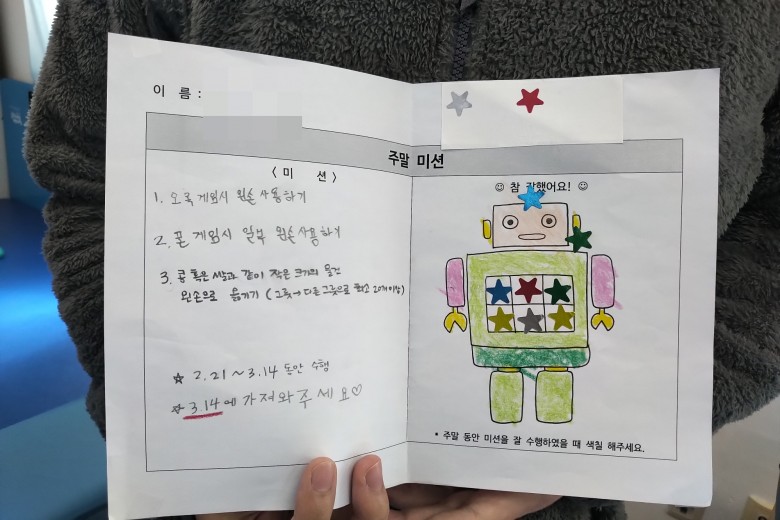 이 름 :
주말 미션
< 미 션 >
1. 오목 게임시 왼손 사용하기
2. 폰 게임시 일부 왼손 사용하기
3. 콩 혹은 쌀과 같이 작은 크기의 물건
왼손으로 옮기기 (그릇→다른 그릇으로 최소 20개 이상)
☆ 2.21 ~ 3.14 동안 수행
☆ 3.14 에 가져와 주세요♡
☺ 참 잘했어요! ☺
* 주말 동안 미션을 잘 수행하였을 때 색칠 해주세요.